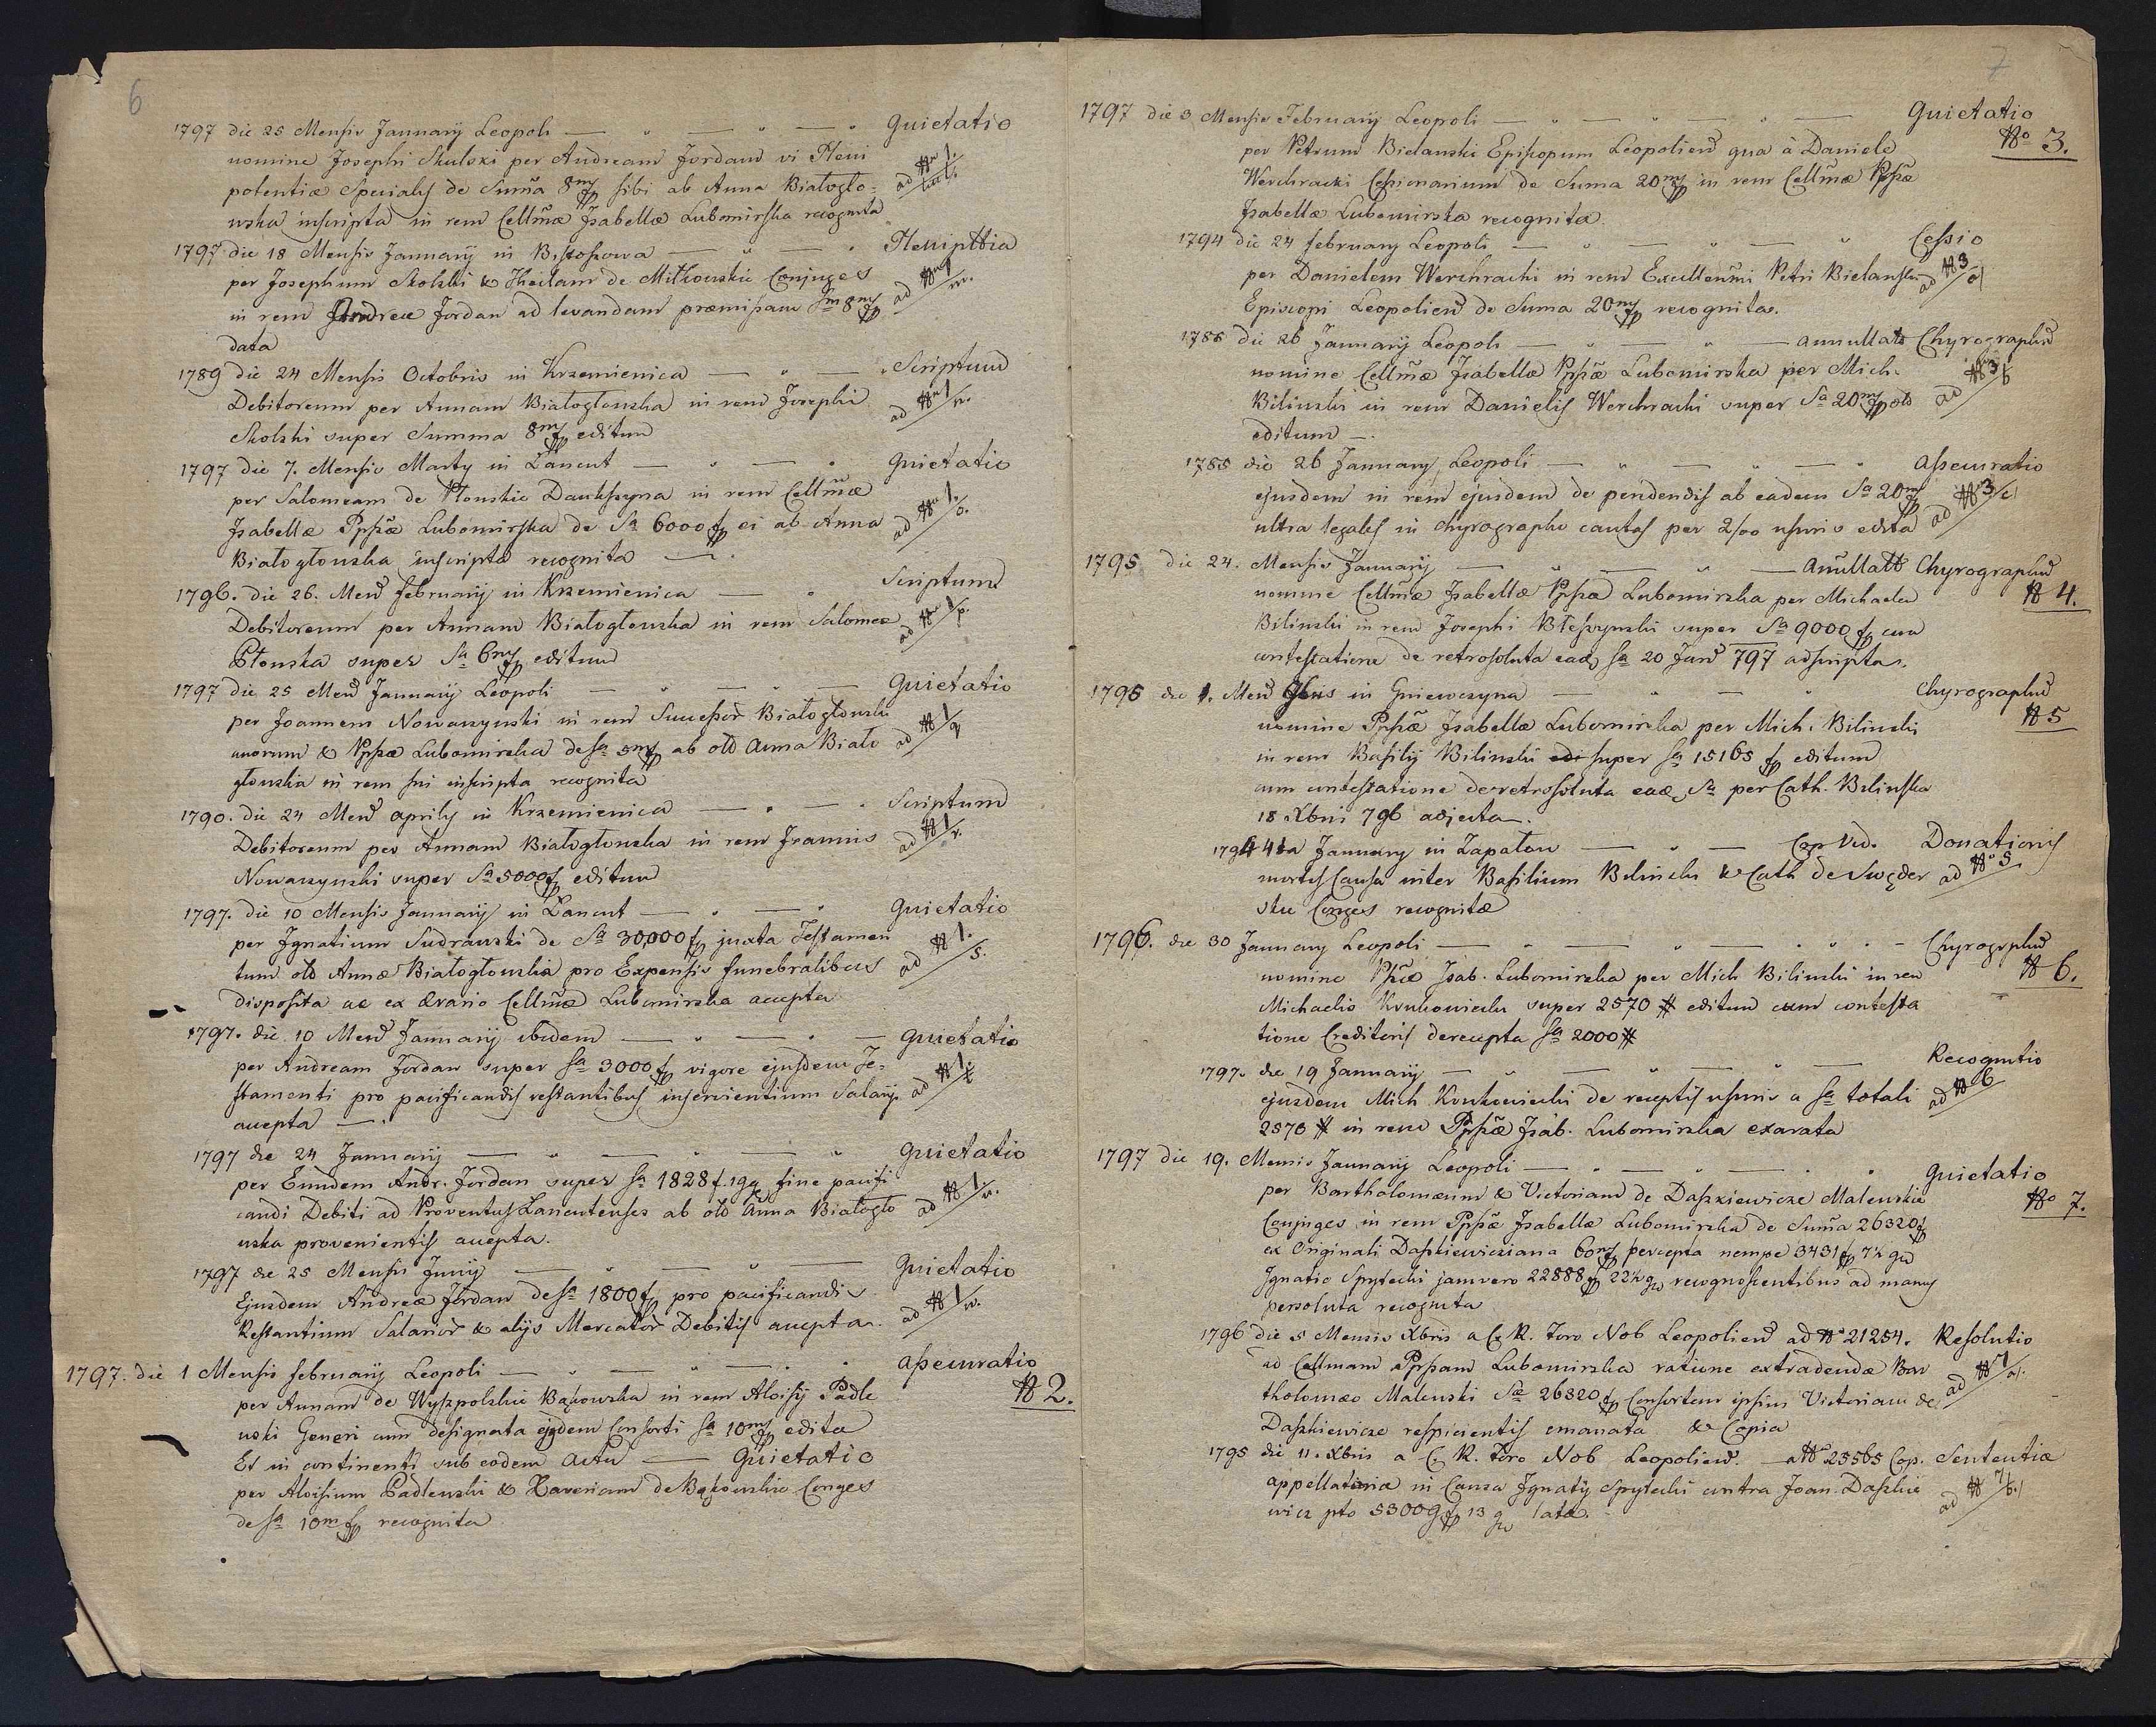 6
1797 die 25 Mensis Januarij Leopoli — " — " — " Quietatio
nomine Josephi Skulski per Andream Jordan vi Pleni
potentiæ Specialis de Sum̃a 8m fp sibi ab Anna Białogło= ad No 1.
wska inscripta in rem Cellm̃æ Isabellæ Lubomirska recognita
1797 die 18 Mensis Januarij in — " — " Pleniptia
per Josephum Skolski & de Miłkowskie Conjuges
in rem Andreæ Jordan ad levandam præmissam Sm 8m fp ad No 1/m.
data
1789 die 24 Mensis Octobris in Krzemienica — " — " Scriptum
Debitoreum per Annam Białogłouska in rem Josephi ad No 1/n.
Skolski super Summa 8m fp editum
1797 die 7. Mensis Marty in Łancut — " — " Quietatio
per Salomeam de Płonskie in rem Cellm̃æ
Isabellæ Ppssæ Lubomirska de Sa 6000 fp ei ab Anna ad No 1./o.
Białogłouska inscripta recognita — .
1796. die 26. Mens february in Krzemienica — " Scriptum
Debitoreum per Annam Białogłouska in rem Salomeæ ad No 1/p.
Płonska super Sa 6m fp editum
1797 die 25 Mens Januarij Leopoli — " — " — Quietatio
per Joannem Nowaszynski in rem Sucessor Białogłouski
anorum & Ppssæ Lubomirska de sa 5m fp ab olo Anna Biało ad No 1/q
głouska in rem sui inscripta recognita
1790. die 24 Mens aprily in Krzemienica — " — " Scriptum
Debitoreum per Annam Białogłouska in rem Joannis ad No 1/r.
Nowaszynski super Sa 5000 fp editum
1797. die 10 Mensis Januarij in Łancut — " — " Quietatio
per Ignatium Sudrauski de Sa 30,000 fp juxta Testamen
tum olo Annæ Białogłouska pro Expensis funebralibus ad No 1./s.
disposita ac ex Ærario Cellm̃æ Lubomirska accepta
1797. die 10 Mens Januarij ibidem — " — " — Quietatio
per Andream Jordan super sa 3000 fp vigore ejusdem Te=
stamenti pro pacificandis restantibus inservientium Salarijs ad No 1./t
accepta — .
1797 die 24 Januarij — " — " — " Quietatio
per Eundem Andr. Jordan super sa 1828 f. 19 g fine pacifi
candi Debiti ad Proventus Lancutenses ab olo Anna Białogło ad No 1./u.
uska provenientis accepta.
1797 die 25 Mensis Junij — " — " — Quietatio
Ejusdem Andreæ Jordan de sa 1800 fp pro pacificandis
Restantium Salarior & alijs Mercator Debitis accepta. ad No 1/w.
1797. die 1 Mensis february Leopoli — " — " — " Assecuratio
per Annam de Wyszpolskie Bąkowska in rem Aloisij Padle No 2.
uski Generi cum designata ejdem Consorti Sa 10m fp edita
Et in continenti sub eodem actu — Quietatio
per Aloisium Padleuski & Xaveriam de Bąkowskie Conges
de sa 10m fp recognita
7
1797 die 3 Mensis February Leopoli — " — " — " — Quietatio
per Petrum Bielanski Episcopum Leopoliens qua à Daniele No 3.
Werchracki Cessionarium de Suma 20m fp in rem Cellm̃æ Ppssæ
Isabellæ Lubomirska recognita
1794 die 24 february Leopoli — " — " — " Cessio
per Danielem Werchracki in rem Excellenm̃i Petri Bielanski ad No 3/a
Episcopi Leopoliens de Suma 20m fp recognita.
1785 die 26 Januarij Leopoli — " — " — annullatt Chyrographus
nomine Cellm̃æ Isabellæ Ppssæ Lubomirska per Mich.
Bilinski in rem Danielis Werchracki super Sa 20m fp olo ad No 3/b
editum — .
1785 die 26 January Leopoli — " — " — " Assecuratio
ejusdem in rem ejusdem de pendendis ab eadem Sa 20m fp ad No 3/c
ultra legales in chyrographo cautas per 2/00 usuris edita
1795 die 24. Mensis Januarij — " — " — anullatt Chyrographus
nomine Cellm̃æ Isabellæ Ppssæ Lubomirska per Michaelem No 4.
Bilinski in rem Josephi Błeszynski super Sa 9000 fp cum
contestatione de retrosoluta ead sa 20 Jan 797 adscripta.
1795 die 1. Mens 9bris in Gniewczyna — " — " Chyrographus
nomine Ppssæ Isabellæ Lubomirska per Mich. Bilinski No 5
in rem Basilij Bilinski super sa 15165 fp editum
cum contestatione de retrosoluta ead Sa per Cath. Bilinska
18 Xbris 796 adjecta.
1794 4ta January in Zapałow — " — Cop Vid. Donationis
mortis Causa inter Basilium Bilinski & Cath de Swęder ad No 5.
skie Conges recognitæ
1796. die 30 January Leopoli — " — " — " Chyrogrphus
nomine Ppssæ Isab. Lubomirska per Mich Bilinski in rem No 6.
Michaelis Krukowiecki super 2570 # editum cum contesta
tione Creditoris derecepta Sa 2000 #
1797. die 19 Januarij — " — " — " — Recognitio
ejusdem Mich Krukowiecki de receptis usuris a sa totali ad No 6
2570 # in rem Ppssæ Isab. Lubomirska exarata
1797 die 19. Mensis Januarij Leopoli — " — " — " Quietatio
per Bartholomæum & Victoriam de Daszkiewicze Maleuskie No 7.
Conjuges in rem Ppssæ Isabellæ Lubomirska de Sum̃a 26320 fp
ex Originali Daszkiewicziana 60m fp percepta nempe 3431 fp 7½ gr
Ignatio Spytecki jamvero 22888 fp 22½ gr recognoscentibus ad manus
persoluta recognita
1796 die 5 Mensis Xbris a C. R. Foro Nob Leopoliens ad No 21254. Resolutio
ad Cellmam Ppssam Lubomirska ratione extradendæ Bar
tholomæo Maleuski Sæ 26320 fp Consortem ipsius Victoriam de ad No 7/a.
Daszkiewicze respicientis emanata & Copia
1795 die 11. Xbris a C. R. Foro Nob Leopoliens. — a No 25565 Cop. Sententiæ
appellatoria in Causa Ignatij Spytecki contra Joan. Daszkie
wicz pto 53009 fp 13 gr latæ. ad No 7/b.